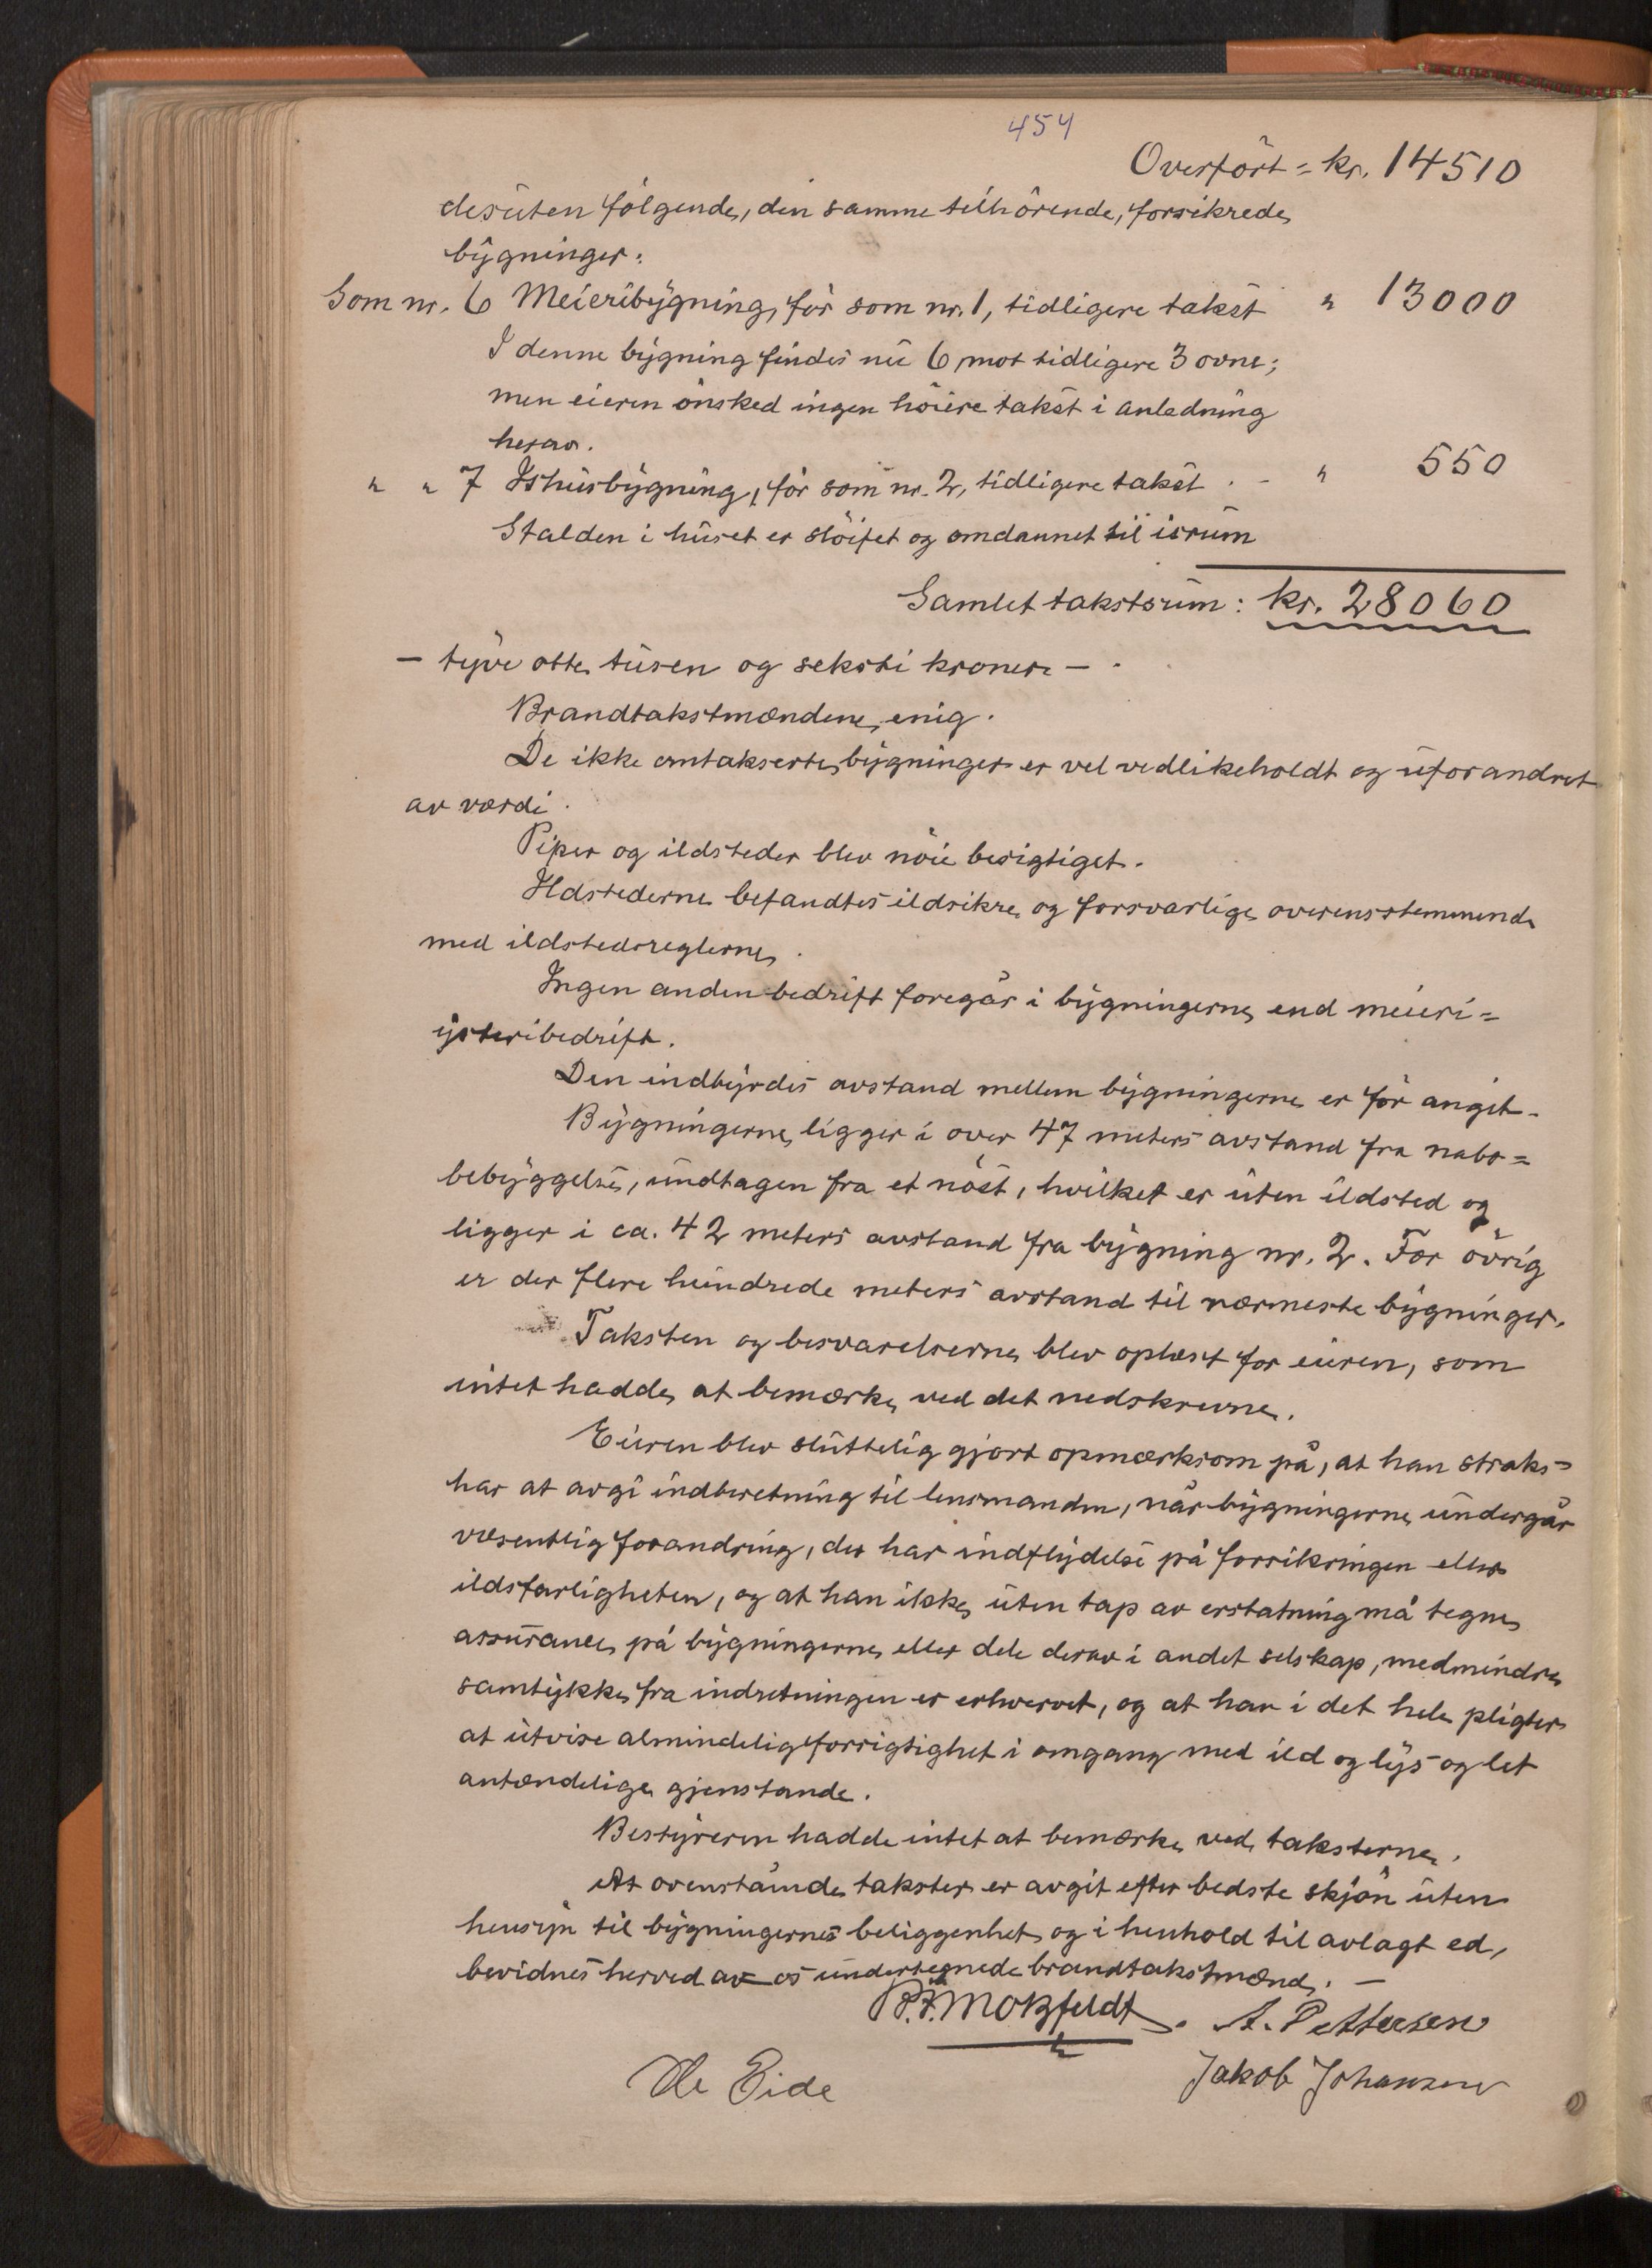 454
Overført = kr. 14510
desuten følgende, den samme tilhørende, forsikrede
bygninger:
Som nr. 6 Meieribygning, før som nr. 1, tidligere takst " 13000
I denne bygning findes nu 6 mot tidligere 3 ovne;
men eieren ønsked ingen høiere takst i anledning
herav.
" " 7 Ishusbygning, før som nr. 2, tidligere takst . - " 550
Stalden i huset er sløifet og omdannet til isrum
Samlet takstsum: kr. 28060
- tyve otte tusen og seksti kroner - .
Brandtakstmændene enig.
De ikke omtakserte bygninger er vel vedlikeholdt og uforandret
av værdi.
Piper og ildsteder blev nøie besigtiget.
Ildstederne befandtes ildsikre og forsvarlige overensstemmende
med ildstedsreglerne.
Ingen anden bedrift foregår i bygningerne end meieri=
ysteribedrift.
Den indbyrdes avstand mellem bygningerne er før angit.
Bygningerne ligger i over 47 meters avstand fra nabo=
bebyggelse, undtagen fra et nøst, hvilket er uten ildsted og
ligger i ca. 42 meters avstand fra bygning nr. 2. For øvrig
er der flere hundrede meters avstand til nærmeste bygninger.
Taksten og besvarelserne blev oplæst for eieren, som
intet hadde at bemærke ved det nedskrevne.
Eieren blev sluttelig gjort opmærksom på, at han straks
har at avgi indberetning til lensmanden, når bygningerne undergår
væsentlig forandring, der har indflydelse på forsikringen eller
ildsfarligheten, og at han ikke uten tap av erstatning må tegne
assurance på bygningerne eller dele derav i andet selskap, medmindre
samtykke fra indretningen er erhvervet, og at han i det hele pligter
at utvise almindelig forsigtighet i omgang med ild og lys og let
antændelige gjenstande.
Bestyreren hadde intet at bemærke ved taksterne.
At ovenstående takster er avgit efter bedste skjøn uten
hensyn til bygningernes beliggenhet og i henhold til avlagt ed,
bevidnes herved av os undertegnede brandtakstmænd. -
P. F. Motzfeldt. A. Pettersen
Ole Eide Jakob Johansen